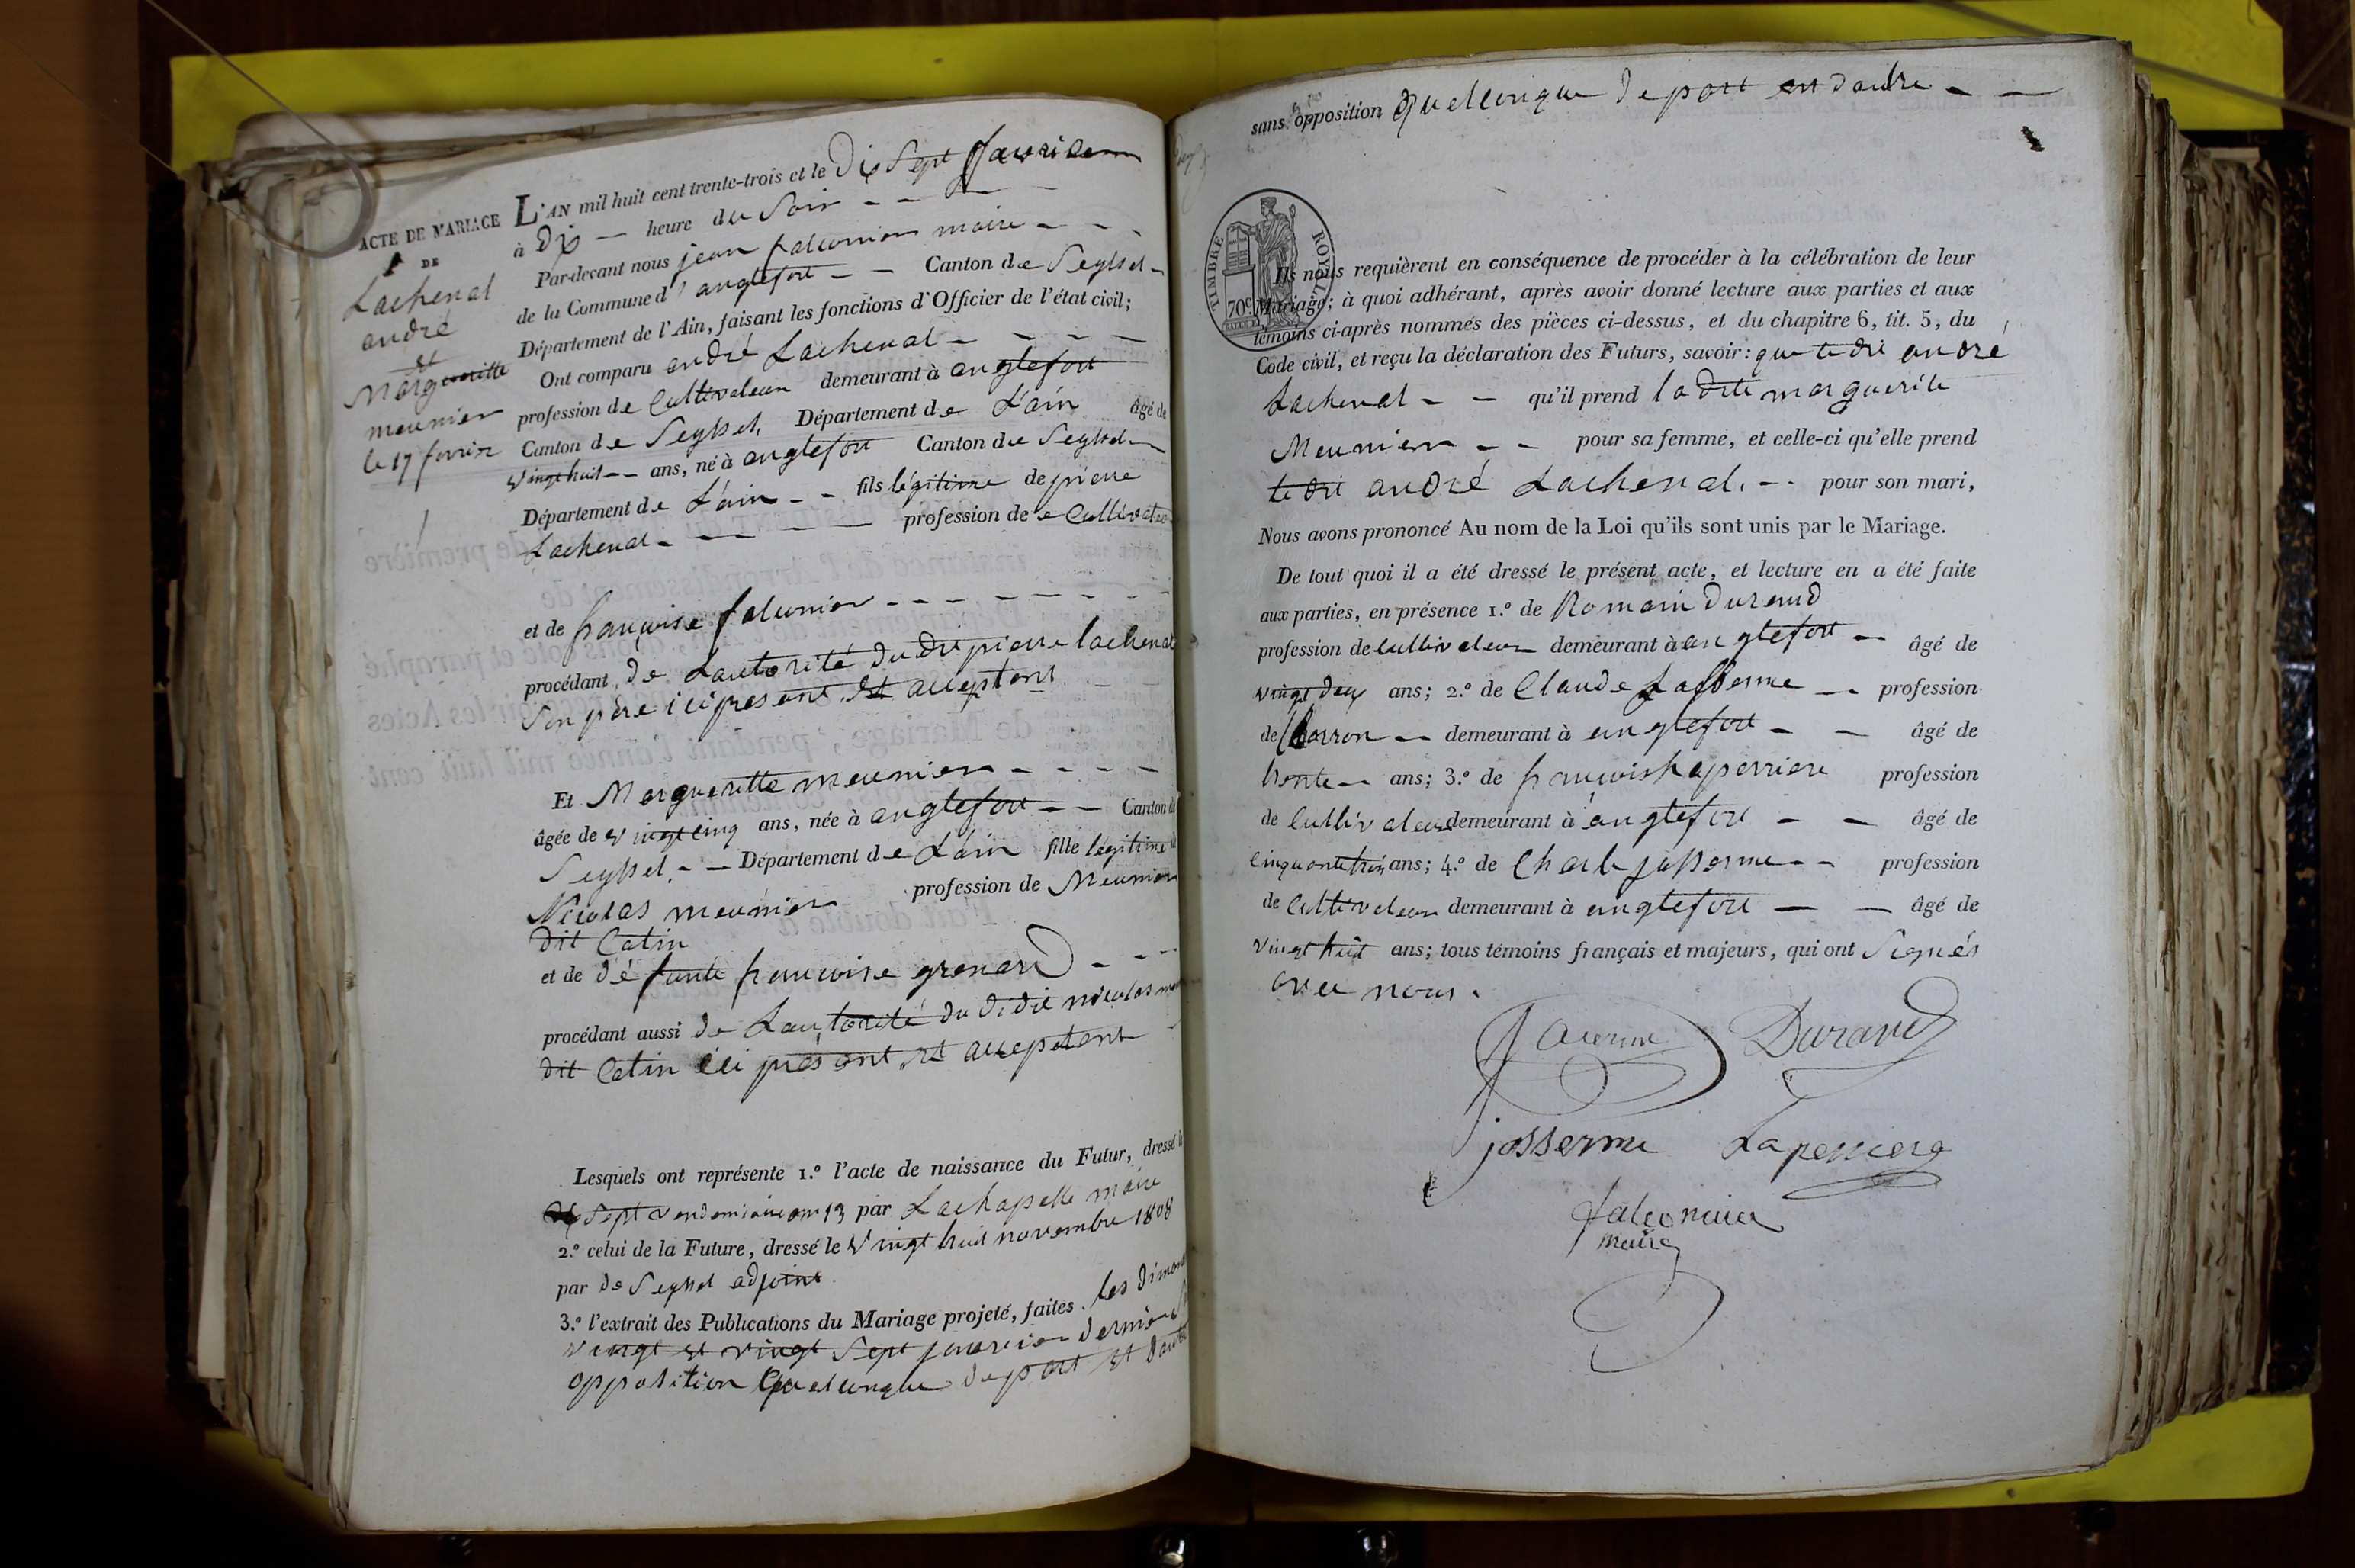 ACTE DE MARIAGE
DE
Lachenal
andré
et
Margueritte
meunier
le 17 fevrier
L'AN mil huit cent trente-trois et le Dix Sept favrier
à Dix — heure du Soir - -
Par-devant nous jean falconnier maire - - -
de la Commune d'anglefort - - Canton de Seyssel -
Département de l'Ain, faisant les fonctions d'Officier de l'état civil;
Ont comparu andré Lachenal - - - -
profession de Cultivateur demeurant à anglefort
Canton de Seyssel, Département de L'ain âgé de
vingt huit - - ans, né à anglefort Canton de Seyssel -
Département de L'ain - - fils légitime de pierre
Lachenal - - - - profession de Cultivateur
et de françoise falconnier - - - - - - -
procédant, de Lautorité du dit pierre lachenal
Son père ici présent et acceptant
Et Margueritte meunier - - - -
âgée de vingt cinq ans, née à anglefort - - Canton de
Seyssel, - - Département de L'ain fille légitime
Nicolas meunier profession de Meunier
dit Catin
et de défunte françoise grenard - - -
procédant aussi de Lautorité du didit nicolas
dit Catin ici présent et acceptant
Lesquels ont représenté 1.º l'acte de naissance du Futur, dressé le
Sept vendemiaire an 13 par Lachapelle maire
2.º celui de la Future, dressé le vingt huit novembre 1808
par de Seyssel adjoint
3.º l'extrait des Publications du Mariage projeté, faites les
vingt et vingt Sept janvier dernier
opposition Quelconque de part et dautre
sans opposition Quelconque de part et dautre - —
TIMBRE ROYAL
70c.
Ils nous requièrent en conséquence de procéder à la célébration de leur
Mariage; à quoi adhérant, après avoir donné lecture aux parties et aux
témoins ci-après nommés des pièces ci-dessus, et du chapitre 6, tit. 5, du
Code civil, et reçu la déclaration des Futurs, savoir: que le dit andré
Lachenal - - qu'il prend la dite marguerite
Meunier - - pour sa femme, et celle-ci qu'elle prend
le dit andré Lachenal. - - pour son mari,
Nous avons prononcé Au nom de la Loi qu'ils sont unis par le Mariage.
De tout quoi il a été dressé le présent acte, et lecture en a été faite
aux parties, en présence 1.º de Romain Durand
profession de Cultivateur demeurant à anglefort - âgé de
vingt deux ans; 2.º de Claude - profession
de Charron - - demeurant à anglefort - - âgé de
trente - ans; 3.º de françois laperriere profession
de Cultivateur demeurant à anglefort - - âgé de
cinquante trois ans; 4.º de Charles josserme - - profession
de Cultivateur demeurant à anglefort - - âgé de
vingt huit ans; tous témoins français et majeurs, qui ont Signés
avec nous.
Durand
josserme Laperriere
falconnier
maire